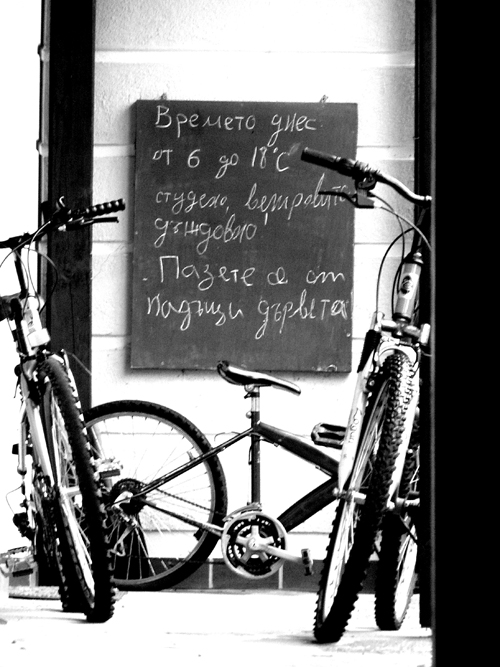 Времето днес
от 6 до 18°C
студено, ветровито
дъждовно
Пазете се от
падащи дървета!